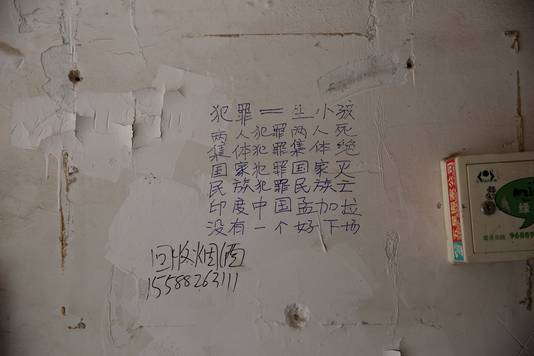 犯罪=生小孩
两人犯罪两人死
集体犯罪集体绝
国家犯罪国家灭
民族犯罪民族亡
印度中国孟加拉
没有一个好下场
回收烟酒
15588263111